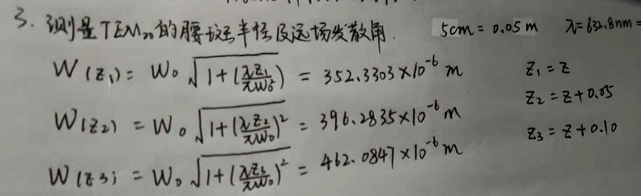 3. 测量TEM₀₀的腰斑半径及远场发散角. 5cm = 0.05 m λ=632.8nm=
W(z₁) = W₀ √(1+(λz₁/πW₀²)) = 352.3303×10⁻⁶ m z₁ = z
W(z₂) = W₀ √(1+(λz₂/πW₀)²) = 396.2835×10⁻⁶ m z₂ = z+0.05
W(z₃) = W₀ √(1+(λz₃/πW₀)²) = 462.0847×10⁻⁶ m z₃ = z+0.10